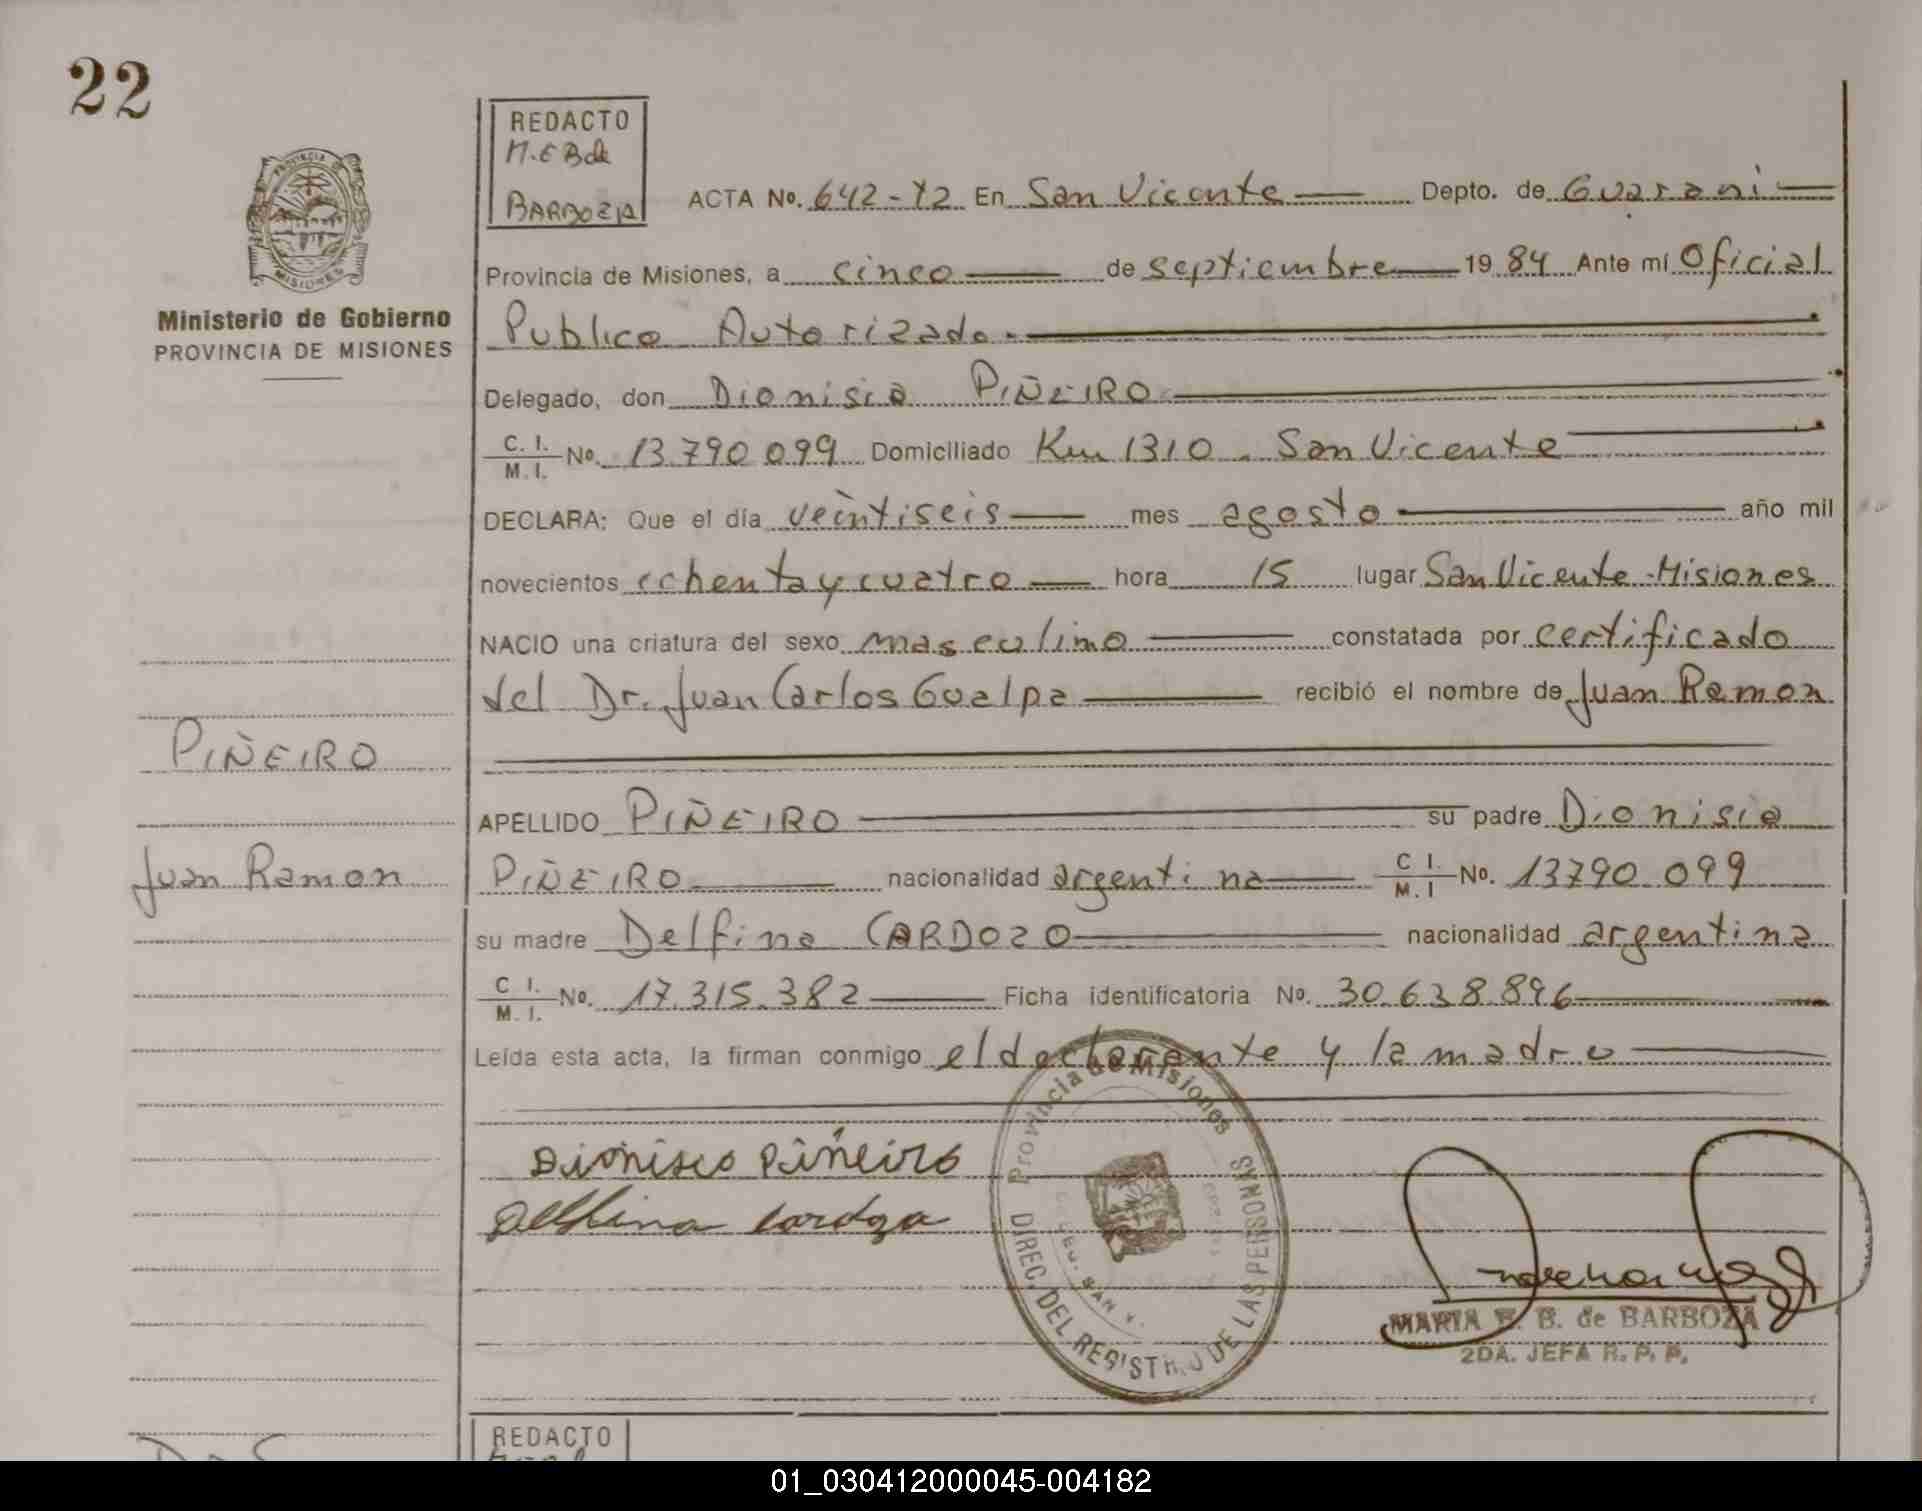 22
REDACTO
M.E.B de
BARBOZA
ACTA No. 642-T2 En San Vicente Depto. de Guarani
Provincia de Misiones, a cinco de septiembre 1984 Ante mí Oficial
Publico Autorizado.
Ministerio de Gobierno
PROVINCIA DE MISIONES
Delegado, don Dionisio PIÑEIRO
C. I. / M. I. No. 13.790.099 Domiciliado Km 1310 - San Vicente
DECLARA: Que el día veintiseis mes agosto año mil
novecientos ochenta y cuatro hora 15 lugar San Vicente-Misiones
NACIO una criatura del sexo masculino constatada por certificado
del Dr. Juan Carlos Gualpa recibió el nombre de Juan Ramon
PIÑEIRO
APELLIDO PIÑEIRO su padre Dionisio
Juan Ramon
PIÑEIRO nacionalidad argentina C I. / M. I No. 13790.099
su madre Delfina CARDOZO nacionalidad argentina
C I. / M. I. No. 17.315.382 Ficha identificatoria No. 30.638.896
Leída esta acta, la firman conmigo el declarante y la madre
Provincia de Misiones
DIREC. DEL REGISTRO DE LAS PERSONAS
Dionisio Piñeiro
Delfina Cardozo
MARIA E. B. de BARBOZA
2DA. JEFA R. P. P.
REDACTO
01_030412000045-004182